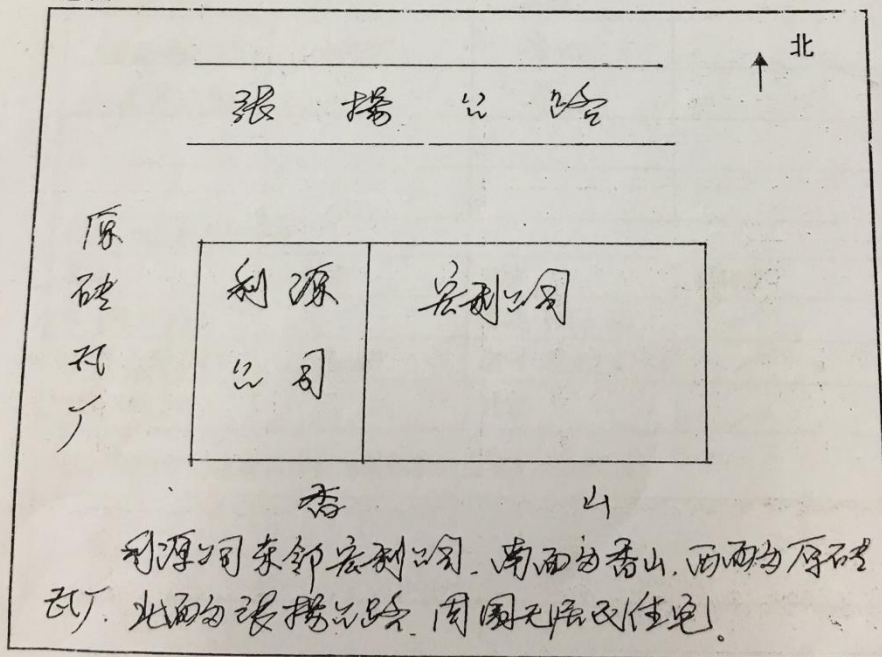 北
张杨公路
原砖瓦厂
利源
公司
宏利公司
香山
利源公司东邻宏利公司.南面为香山.西面为原砖
瓦厂.北面为张杨公路.周围无居民住宅。